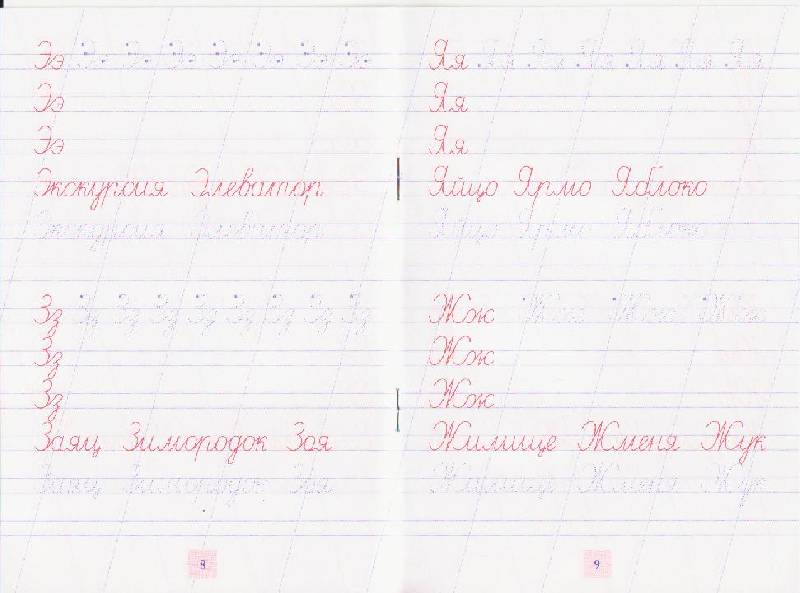 Ээ Ээ Ээ Ээ Ээ Ээ Ээ Ээ
Ээ
Ээ
Экскурсия Элеватор
Экскурсия Элеватор
Зз Зз Зз Зз Зз Зз Зз Зз Зз
Зз
Зз
Заяц Зимородок Зоя
Заяц Зимородок Зоя
8
Яя Яя Яя Яя Яя Яя Яя
Яя
Яя
Яйцо Ярмо Яблоко
Яйцо Ярмо Яблоко
Жж Жж Жж Жж
Жж
Жж
Жилище Жменя Жук
Жилище Жменя Жук
9